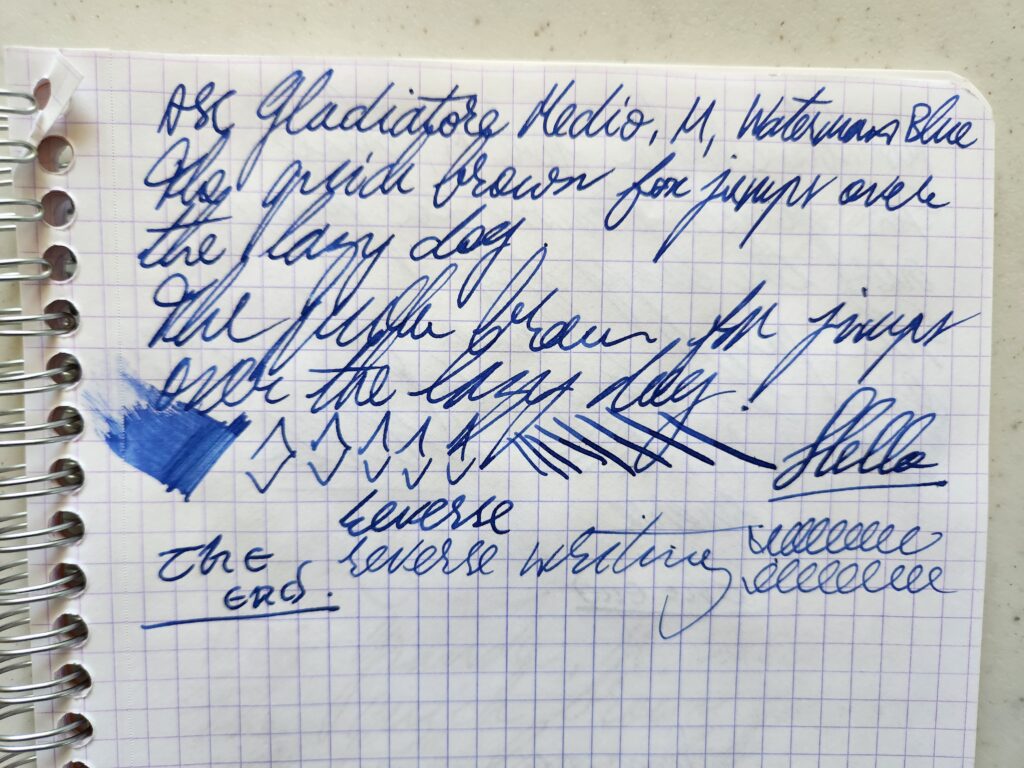 ASC Gladiatore Medio, M, Waterman Blue
The quick brown fox jumps over
the lazy dog
The quick brown fox jumps
over the lazy dog!
Hello
reverse
the reverse writing
end.